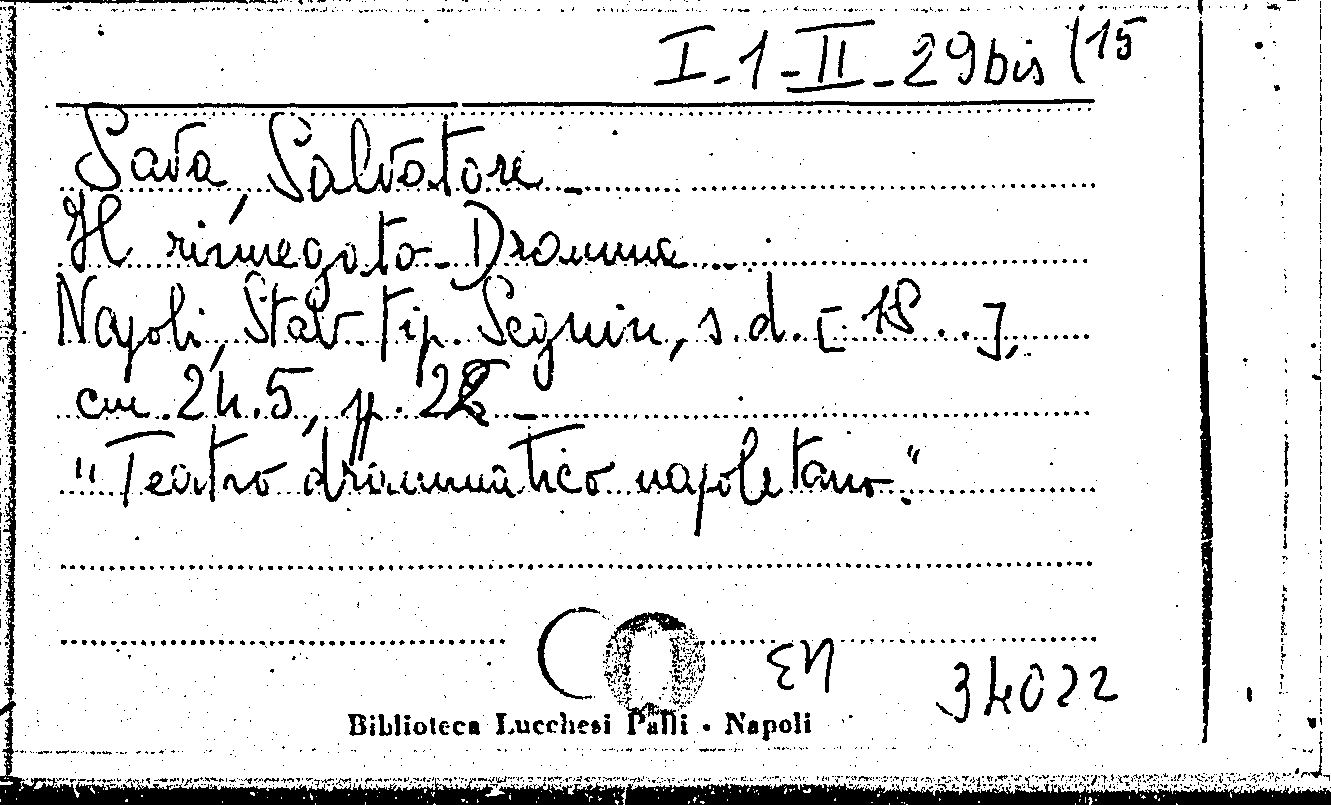 I-1-II-29bis (15
Sava, Salvatore -
Il rinnegato - Dramma -
Napoli, Stab. tip. Seguin, s.d. [18..],
cm. 24.5, p. 22 -
"Teatro drammatico napoletano".
EN
34022
Biblioteca Lucchesi Palli - Napoli